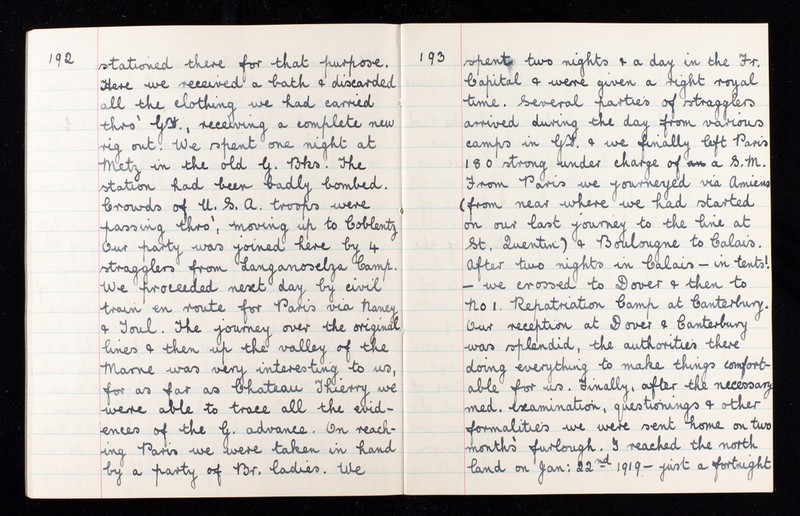 192
stationed there for that purpose.
Here we received a bath & discarded
all the clothing we had carried
thro' Gy., receiving a complete new
rig out. We spent one night at
Metz in the old G. Bks. The
station had been badly bombed.
Crowds of U.S.A. troops were
passing thro', moving up to Coblentz
Our party was joined here by 4
stragglers from Langanoselza Camp.
We proceeded next day by civil
train en route for Paris via Nancy
& Toul. The journey over the original
lines & then up the valley of the
Marne was very interesting to us,
for as far as Chateau Thierry we
were able to trace all the evid-
ences of the G. advance. On reach-
ing Paris we were taken in hand
by a party of Br. ladies. We
193
spent two nights & a day in the Fr.
Capital & were given a right royal
time. Several parties of stragglers
arrived during the day from various
camps in Gy. & we finally left Paris
180 strong under charge of a S.M.
From Paris we journeyed via Amiens
(from near where we had started
on our last journey to the line at
St. Quentin) & Boulougne to Calais.
After two nights in Calais – in tents!
– we crossed to Dover & then to
No 1. Repatriation Camp at Canterbury.
Our reception at Dover & Canterbury
was splendid, the authorities there
doing everything to make things comfort-
able for us. Finally, after the necessary
med. examination, questionings & other
formalities we were sent home on two
months' furlough. I reached the north
land on Jan: 22nd 1919 – just a fortnight